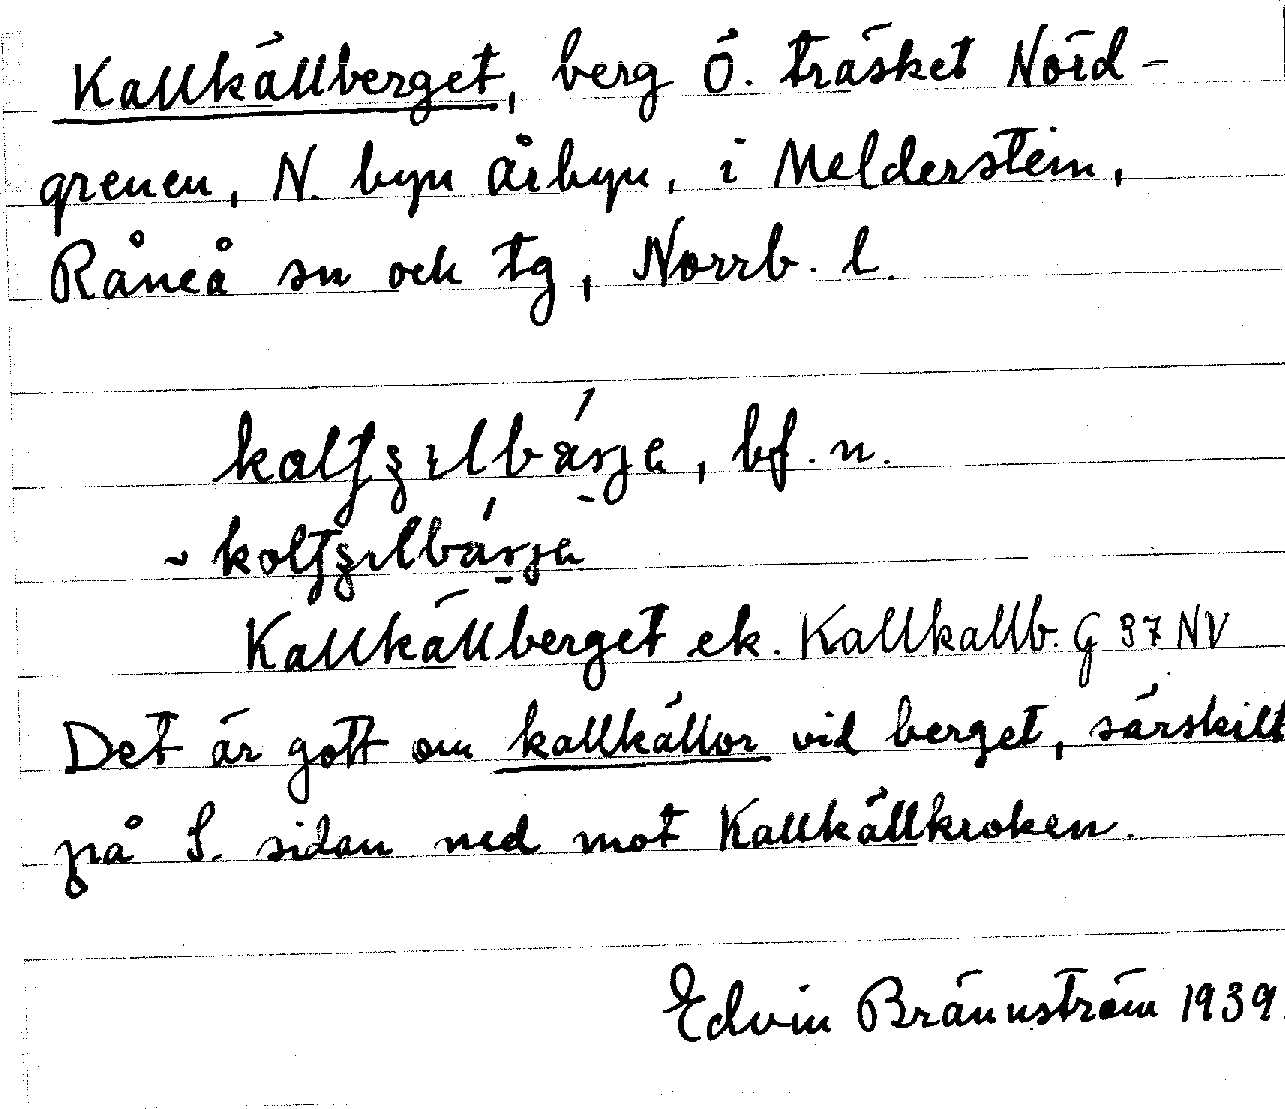 Kallkällberget, berg Ö. träsket Nörd-
grenen, N. byn Årbyn, i Melderstein,
Råneå sn och tg, Norrb. l.
bf. n.
Kallkällberget ek. Kallkallb. G 37 NV
Det är gott om kallkällor vid berget, särskilt
på S. sidan ned mot Kallkällkroken.
Edvin Brännström 1939.